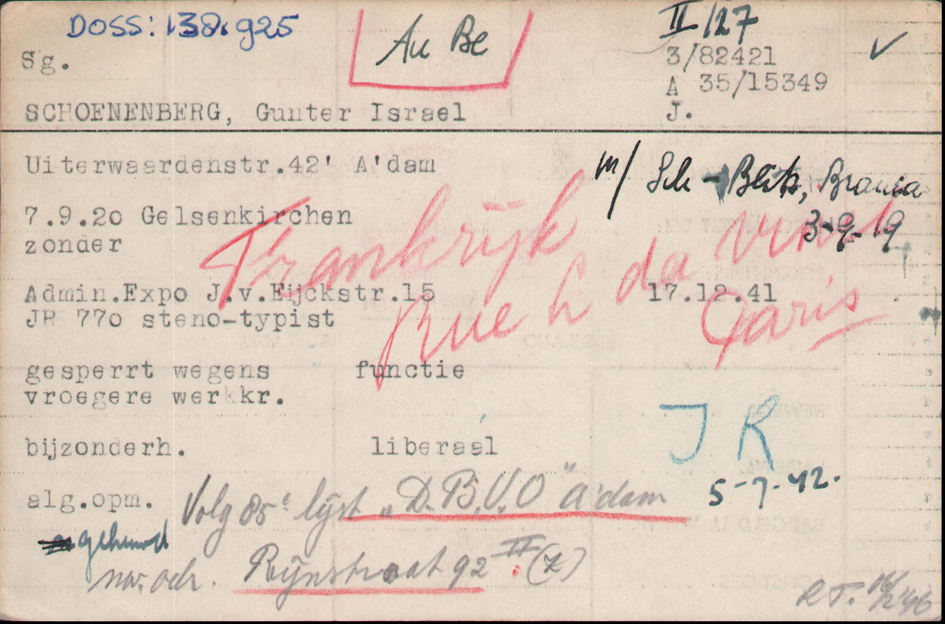 DOSS: 138.925
Au Be
II/127
Sg.
3/82421
A 35/15349
SCHOENENBERG, Gunter Israel
J.
Uiterwaardenstr.42' A'dam
m/ Sch - Blitz,
7.9.20 Gelsenkirchen
3-9-19
zonder
Frankrijk
Rue L da Vinci
Paris
Admin.Expo J.v.Eijckstr.15 17.12.41
JR 770 steno-typist
gesperrt wegens functie
vroegere werkkr.
bijzonderh. liberaal
J R
5-7-42.
alg.opm. Volg 85e lijst "D.B.V.O" A'dam
gehuwd
nw. adr. Rijnstraat 92 II (Z)
RT.